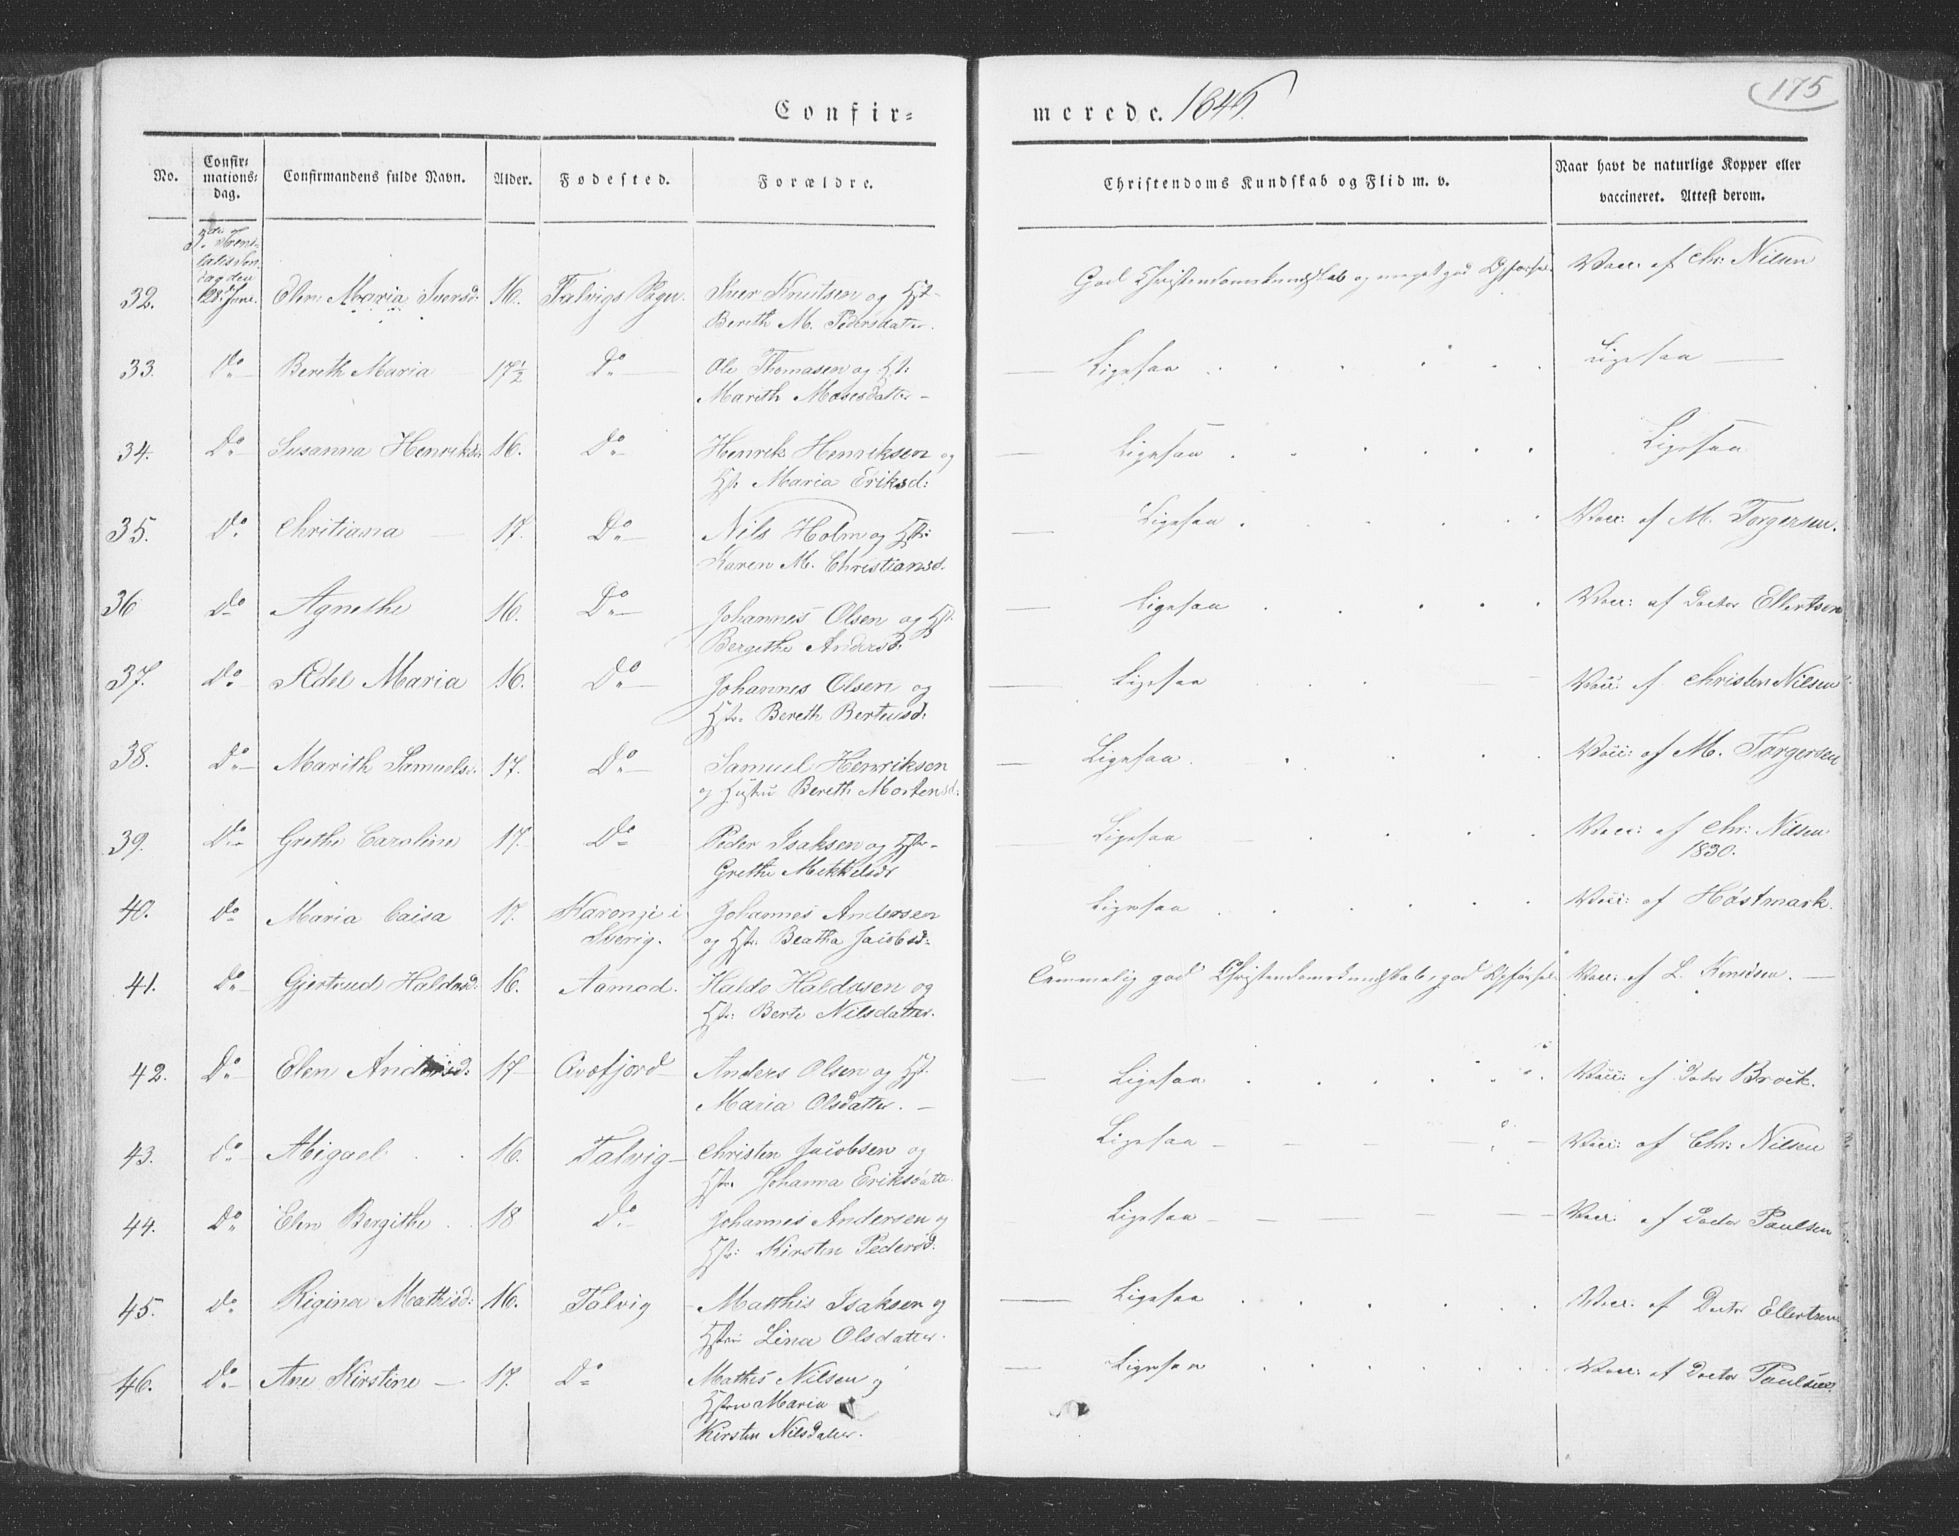 Confir=
merede. 1846
175
No.
Confir=
mations=
dag.
Confirmandens fulde Navn.
Alder.
Fødested.
Forældre.
Christendoms Kundskab og Flid m. v.
Naar havt de naturlige Kopper eller
vaccineret. Attest derom.
32. Elen Maria Iversd: 16. Talvigs Iver Knutsen og Hst. God Christendomskundskab og meget god Opførsel Vacc: af Chr: Nilsen
28de June.
Bereth M. Pedersdatter.
33. Do Bereth Maria 17½ Do Ole Thomasen og Hst: Ligesaa Ligesaa
Marith Mosesdatter
34. Do Susanna Henriksd: 16. Do Henrik Henriksen og Ligesaa Ligesaa
Hst: Maria Eriksd:
35. Do Christiana 17. Do Nils Holm og Hst: Ligesaa Vacc: af M. Torgersen.
Karen M. Christiansd.
36 Do Agnethe 16. Do Johannes Olsen og Hst. Ligesaa Vacc: af Doctor Ellertsen
Bergithe Andersd:
37. Do Adel Maria 16. Do Johannes Olsen og Ligesaa Vacc: af Christen Nilsen
Hst: Bereth Bertusd:
38. Do Marith Samuelsd: 17. Do Samuel Henriksen Ligesaa Vacc: af M. Torgersen
og Hustru Bereth Mortensd:
39. Do Grethe Caroline 17. Do Peder Isaksen og Hst. Ligesaa Vacc: af Chr: Nilsen
1830.
Grethe Mikkelsdr
40. Do Maria Caisa 17. Karongi i Johannes Andersen Ligesaa Vacc: af Høstmark.
Sverig. og Hst: Beatha Jacobsd:
41. Do Gjertrud Haldosd: 16. Aamod. Haldo Haldosen og Temmelig god Christendomskundskab, god Opførsel Vacc: af L. Knudsen.
Hst: Berte Nilsdatter.
42. Do Elen Andersd: 17 Qvæfjord Anders Olsen og Hst. Ligesaa Vacc: af Doctor Brock.
Maria Olsdatter.
43. Do Abigael 16. Talvig Christen Jacobsen og Ligesaa Vacc: af Chr: Nilsen
Hst: Johanna Eriksdatter.
44. Do Elen Bergithe 18 Do Johannes Andersen og Ligesaa Vacc: af Doctor Paulsen
Hst: Kirsten Pedersd:
45. Do Rigina Mathisd: 16. Talvig Matthis Isaksen og Ligesaa Vacc: af Doctor Ellertsen
Hstru Lina Olsdatter.
46. Do Ane Kirstine 17. Do Mathis Nilsen og Ligesaa Vacc: af Doctor Paulsen
Hstru Maria
Kirsten Nilsdatter.